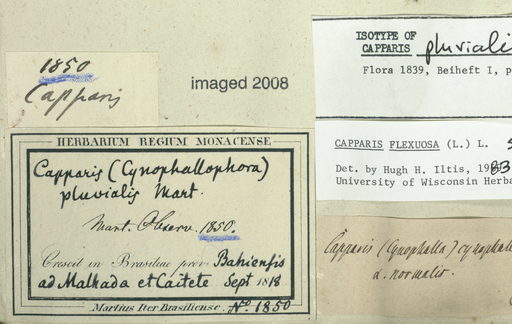 1850
Capparis
imaged 2008
ISOTYPE OF
CAPPARIS pluviali
Flora 1839, Beiheft I, p
CAPPARIS FLEXUOSA (L.) L.
Det. by Hugh H. Iltis, 1983
University of Wisconsin Herba
HERBARIUM REGIUM MONACENSE
Capparis (Cynophallophora)
pluvialis Mart.
Mart. Observ. 1850.
Crescit in Brasiliae prov. Bahiensis
ad Malhada et Caitete Sept 1818
Martius Iter Brasiliense. No. 1850
Capparis (Cynophalla) cynophall
α. normalis.